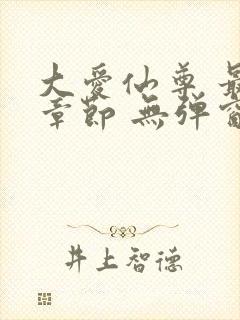 大愛仙尊 最
章節 無彈窗
井上智德